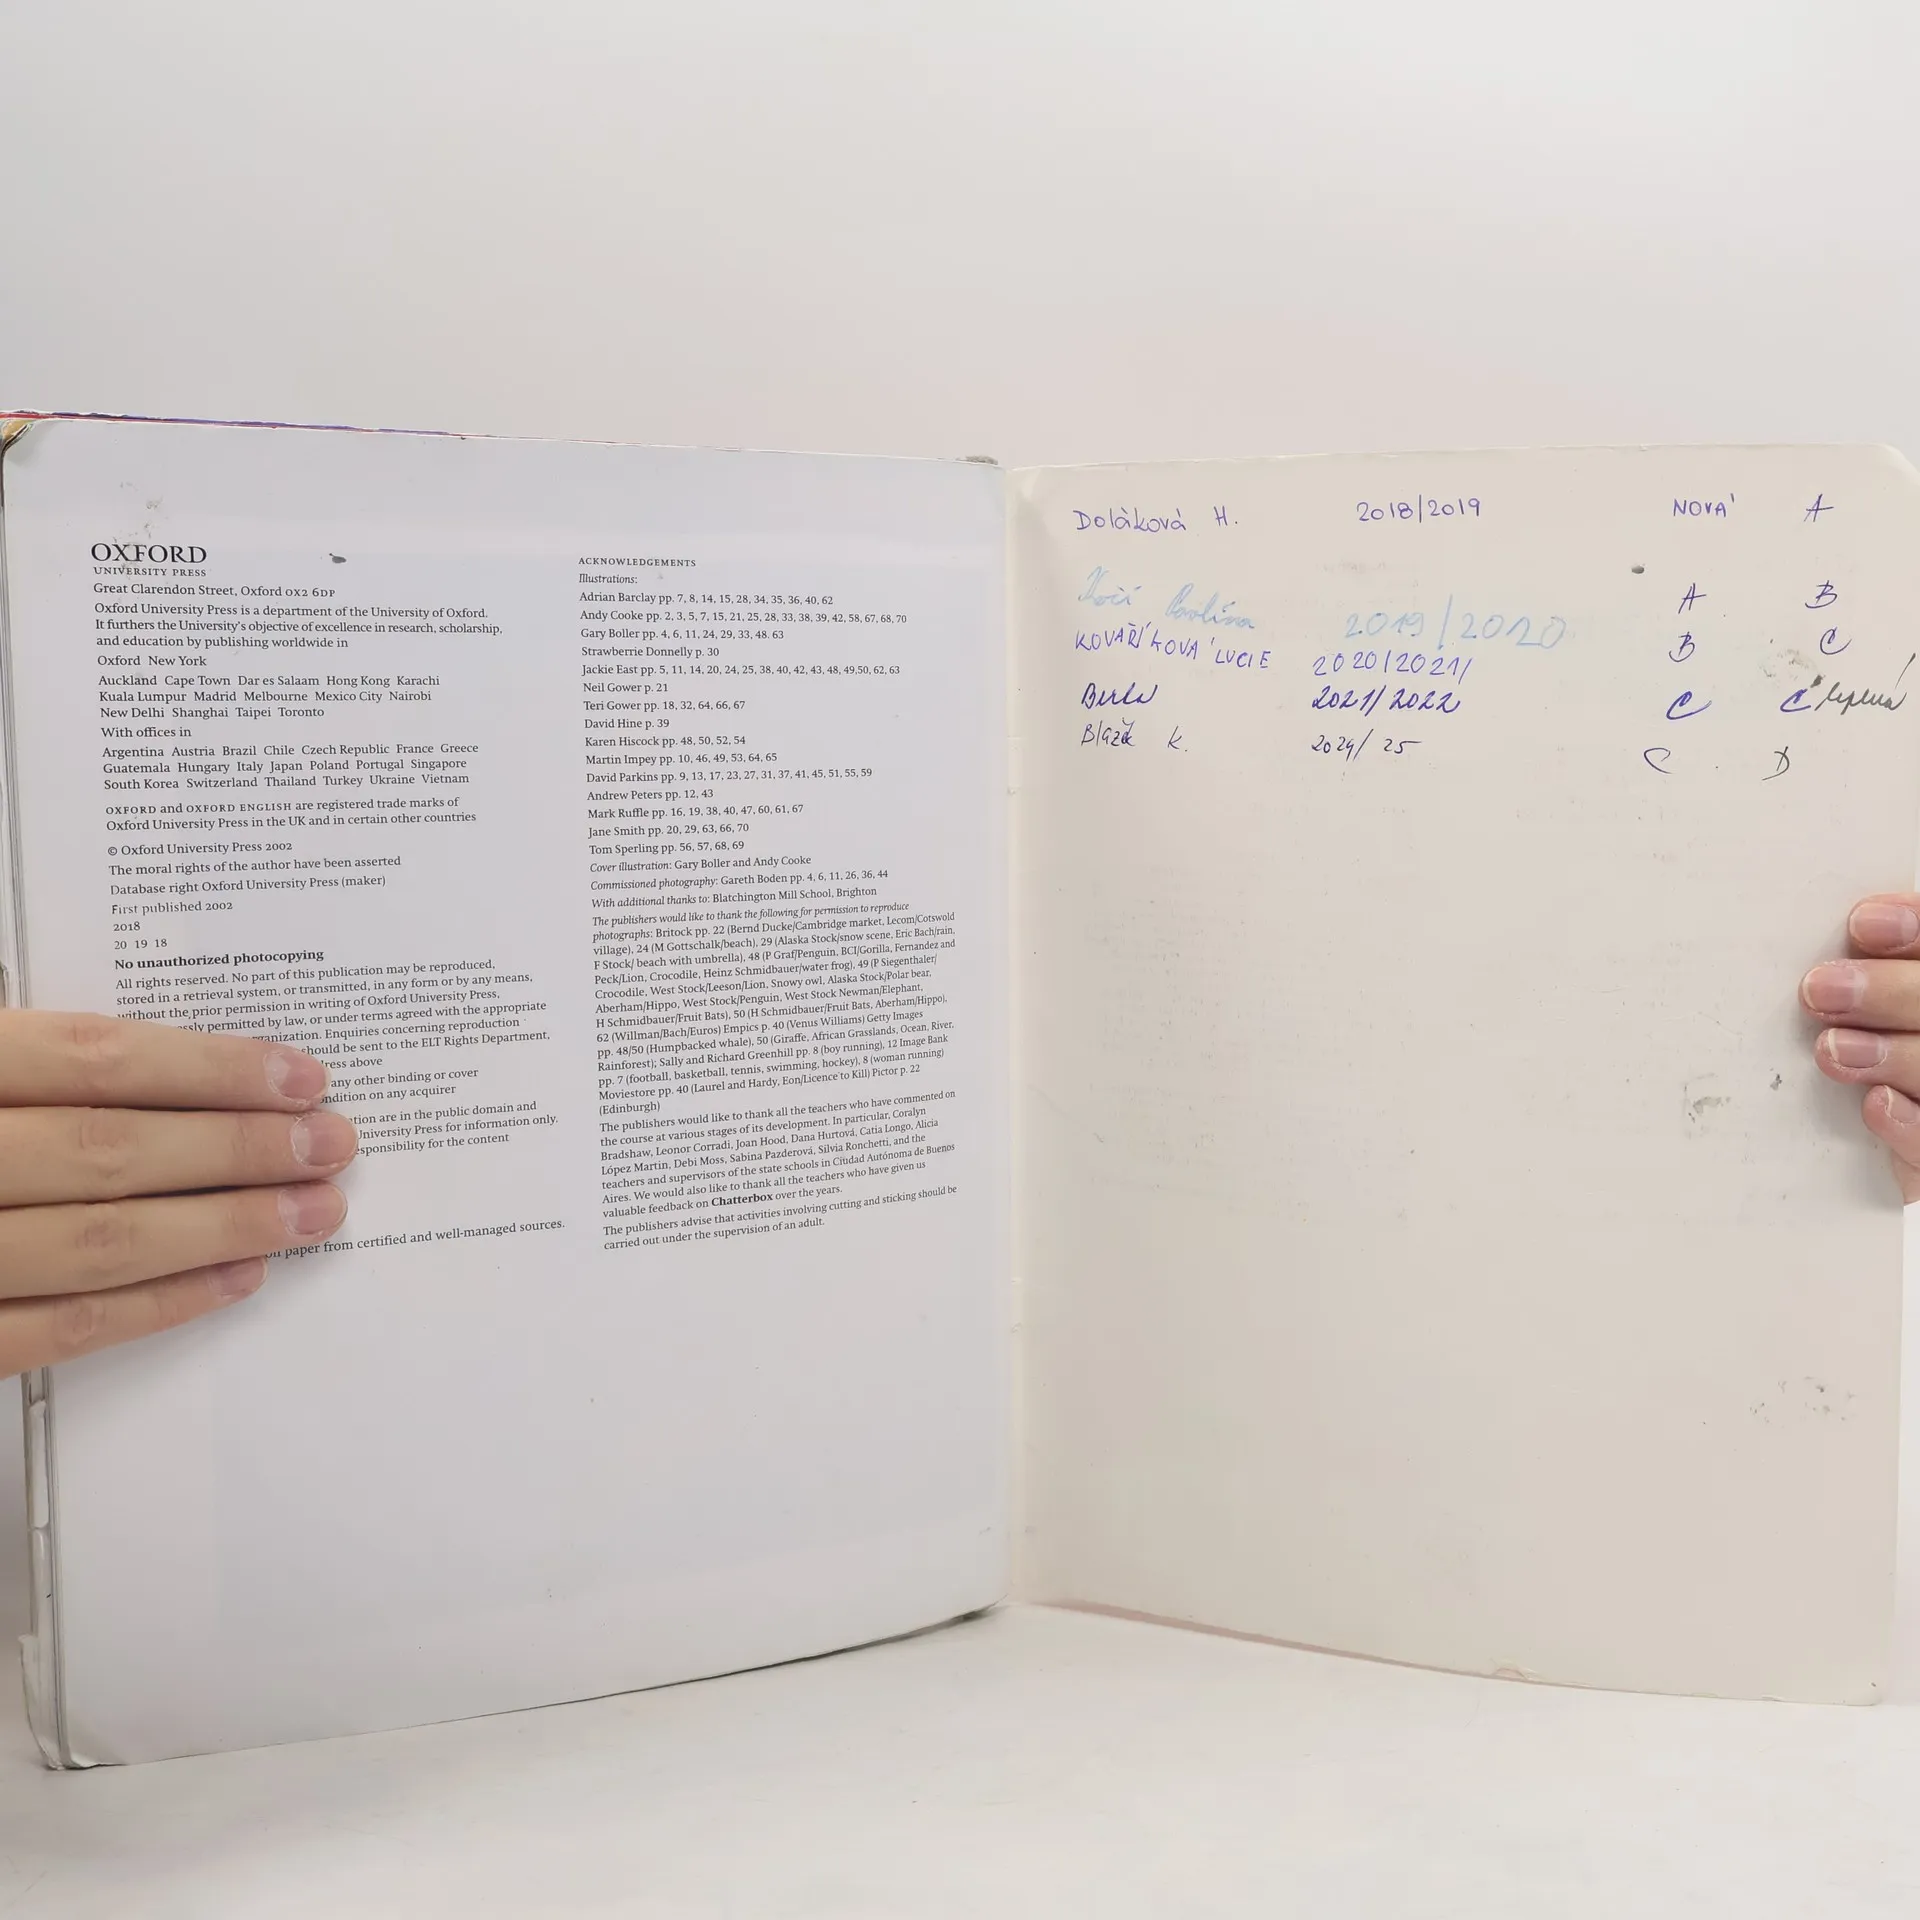 OXFORD
UNIVERSITY PRESS
Great Clarendon Street, Oxford OX2 6DP
Oxford University Press is a department of the University of Oxford.
It furthers the University's objective of excellence in research, scholarship,
and education by publishing worldwide in
Oxford New York
Auckland Cape Town Dar es Salaam Hong Kong Karachi
Kuala Lumpur Madrid Melbourne Mexico City Nairobi
New Delhi Shanghai Taipei Toronto
With offices in
Argentina Austria Brazil Chile Czech Republic France Greece
Guatemala Hungary Italy Japan Poland Portugal Singapore
South Korea Switzerland Thailand Turkey Ukraine Vietnam
OXFORD and OXFORD ENGLISH are registered trade marks of
Oxford University Press in the UK and in certain other countries
© Oxford University Press 2002
The moral rights of the author have been asserted
Database right Oxford University Press (maker)
First published 2002
2018
20 19 18
No unauthorized photocopying
All rights reserved. No part of this publication may be reproduced,
stored in a retrieval system, or transmitted, in any form or by any means,
without the prior permission in writing of Oxford University Press,
permitted by law, or under terms agreed with the appropriate
Enquiries concerning reproduction
should be sent to the ELT Rights Department,
above
any other binding or cover
on any acquirer
are in the public domain and
University Press for information only.
for the content
paper from certified and well-managed sources.
ACKNOWLEDGEMENTS
Illustrations:
Adrian Barclay pp. 7, 8, 14, 15, 28, 34, 35, 36, 40, 62
Andy Cooke pp. 2, 3, 5, 7, 15, 21, 25, 28, 33, 38, 39, 42, 58, 67, 68, 70
Gary Boller pp. 4, 6, 11, 24, 29, 33, 48. 63
Strawberrie Donnelly p. 30
Jackie East pp. 5, 11, 14, 20, 24, 25, 38, 40, 42, 43, 48, 49,50, 62, 63
Neil Gower p. 21
Teri Gower pp. 18, 32, 64, 66, 67
David Hine p. 39
Karen Hiscock pp. 48, 50, 52, 54
Martin Impey pp. 10, 46, 49, 53, 64, 65
David Parkins pp. 9, 13, 17, 23, 27, 31, 37, 41, 45, 51, 55, 59
Andrew Peters pp. 12, 43
Mark Ruffle pp. 16, 19, 38, 40, 47, 60, 61, 67
Jane Smith pp. 20, 29, 63, 66, 70
Tom Sperling pp. 56, 57, 68, 69
Cover illustration: Gary Boller and Andy Cooke
Commissioned photography: Gareth Boden pp. 4, 6, 11, 26, 36, 44
With additional thanks to: Blatchington Mill School, Brighton
The publishers would like to thank the following for permission to reproduce
photographs: Britock pp. 22 (Bernd Ducke/Cambridge market, Lecom/Cotswold
village), 24 (M Gottschalk/beach), 29 (Alaska Stock/snow scene, Eric Bach/rain,
F Stock/ beach with umbrella), 48 (P Graf/Penguin, BCI/Gorilla, Fernandez and
Peck/Lion, Crocodile, Heinz Schmidbauer/water frog), 49 (P Siegenthaler/
Crocodile, West Stock/Leeson/Lion, Snowy owl, Alaska Stock/Polar bear,
Aberham/Hippo, West Stock/Penguin, West Stock Newman/Elephant,
H Schmidbauer/Fruit Bats), 50 (H Schmidbauer/Fruit Bats, Aberham/Hippo),
62 (Willman/Bach/Euros) Empics p. 40 (Venus Williams) Getty Images
pp. 48/50 (Humpbacked whale), 50 (Giraffe, African Grasslands, Ocean, River,
Rainforest); Sally and Richard Greenhill pp. 8 (boy running), 12 Image Bank
pp. 7 (football, basketball, tennis, swimming, hockey), 8 (woman running)
Moviestore pp. 40 (Laurel and Hardy, Eon/Licence to Kill) Pictor p. 22
(Edinburgh)
The publishers would like to thank all the teachers who have commented on
the course at various stages of its development. In particular, Coralyn
Bradshaw, Leonor Corradi, Joan Hood, Dana Hurtová, Catia Longo, Alicia
López Martin, Debi Moss, Sabina Pazderová, Silvia Ronchetti, and the
teachers and supervisors of the state schools in Ciudad Autónoma de Buenos
Aires. We would also like to thank all the teachers who have given us
valuable feedback on Chatterbox over the years.
The publishers advise that activities involving cutting and sticking should be
carried out under the supervision of an adult.
Doláková H. 2018/2019 NOVÁ A
Kočí Pavlína 2019/2020 A B
KOVAŘÍKOVÁ LUCIE 2020/2021/ B C
2021/2022 C C lepená
Blažk K. 2024/25 C D